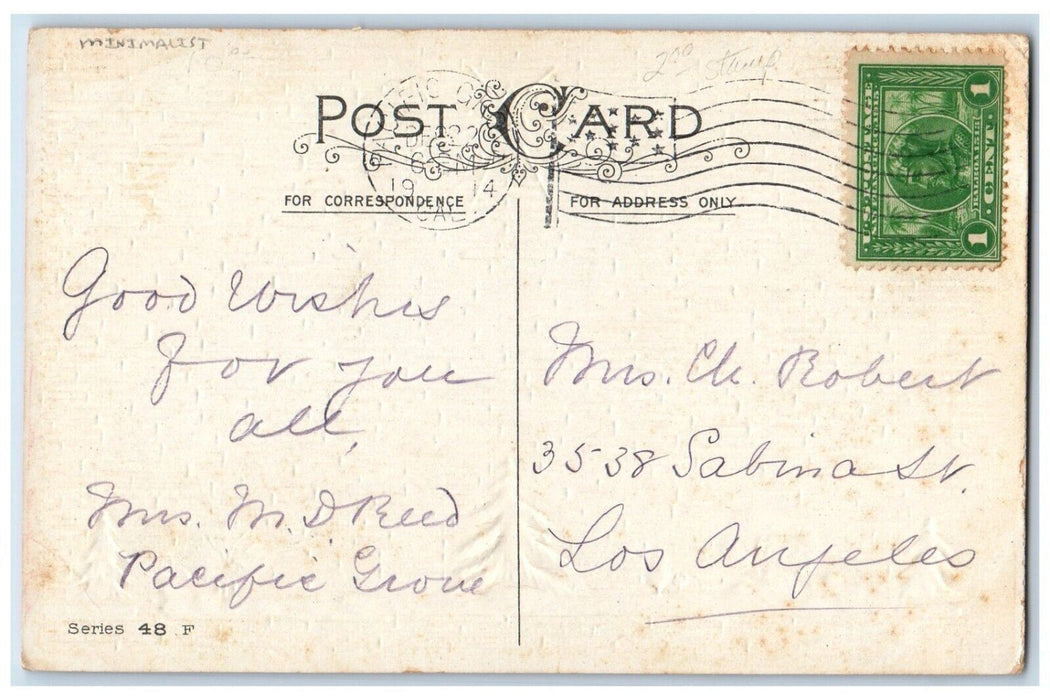 MINIMALIST
POST CARD
DEC 22
19 14
CAL
FOR CORRESPONDENCE
FOR ADDRESS ONLY
U.S. POSTAGE
1 CENT 1
Good Wishes
for you
all,
Mrs. M. D Reed
Pacific Grove
Series 48 F
Mrs. Ch. Robert
3538 Sabina St.
Los Angeles